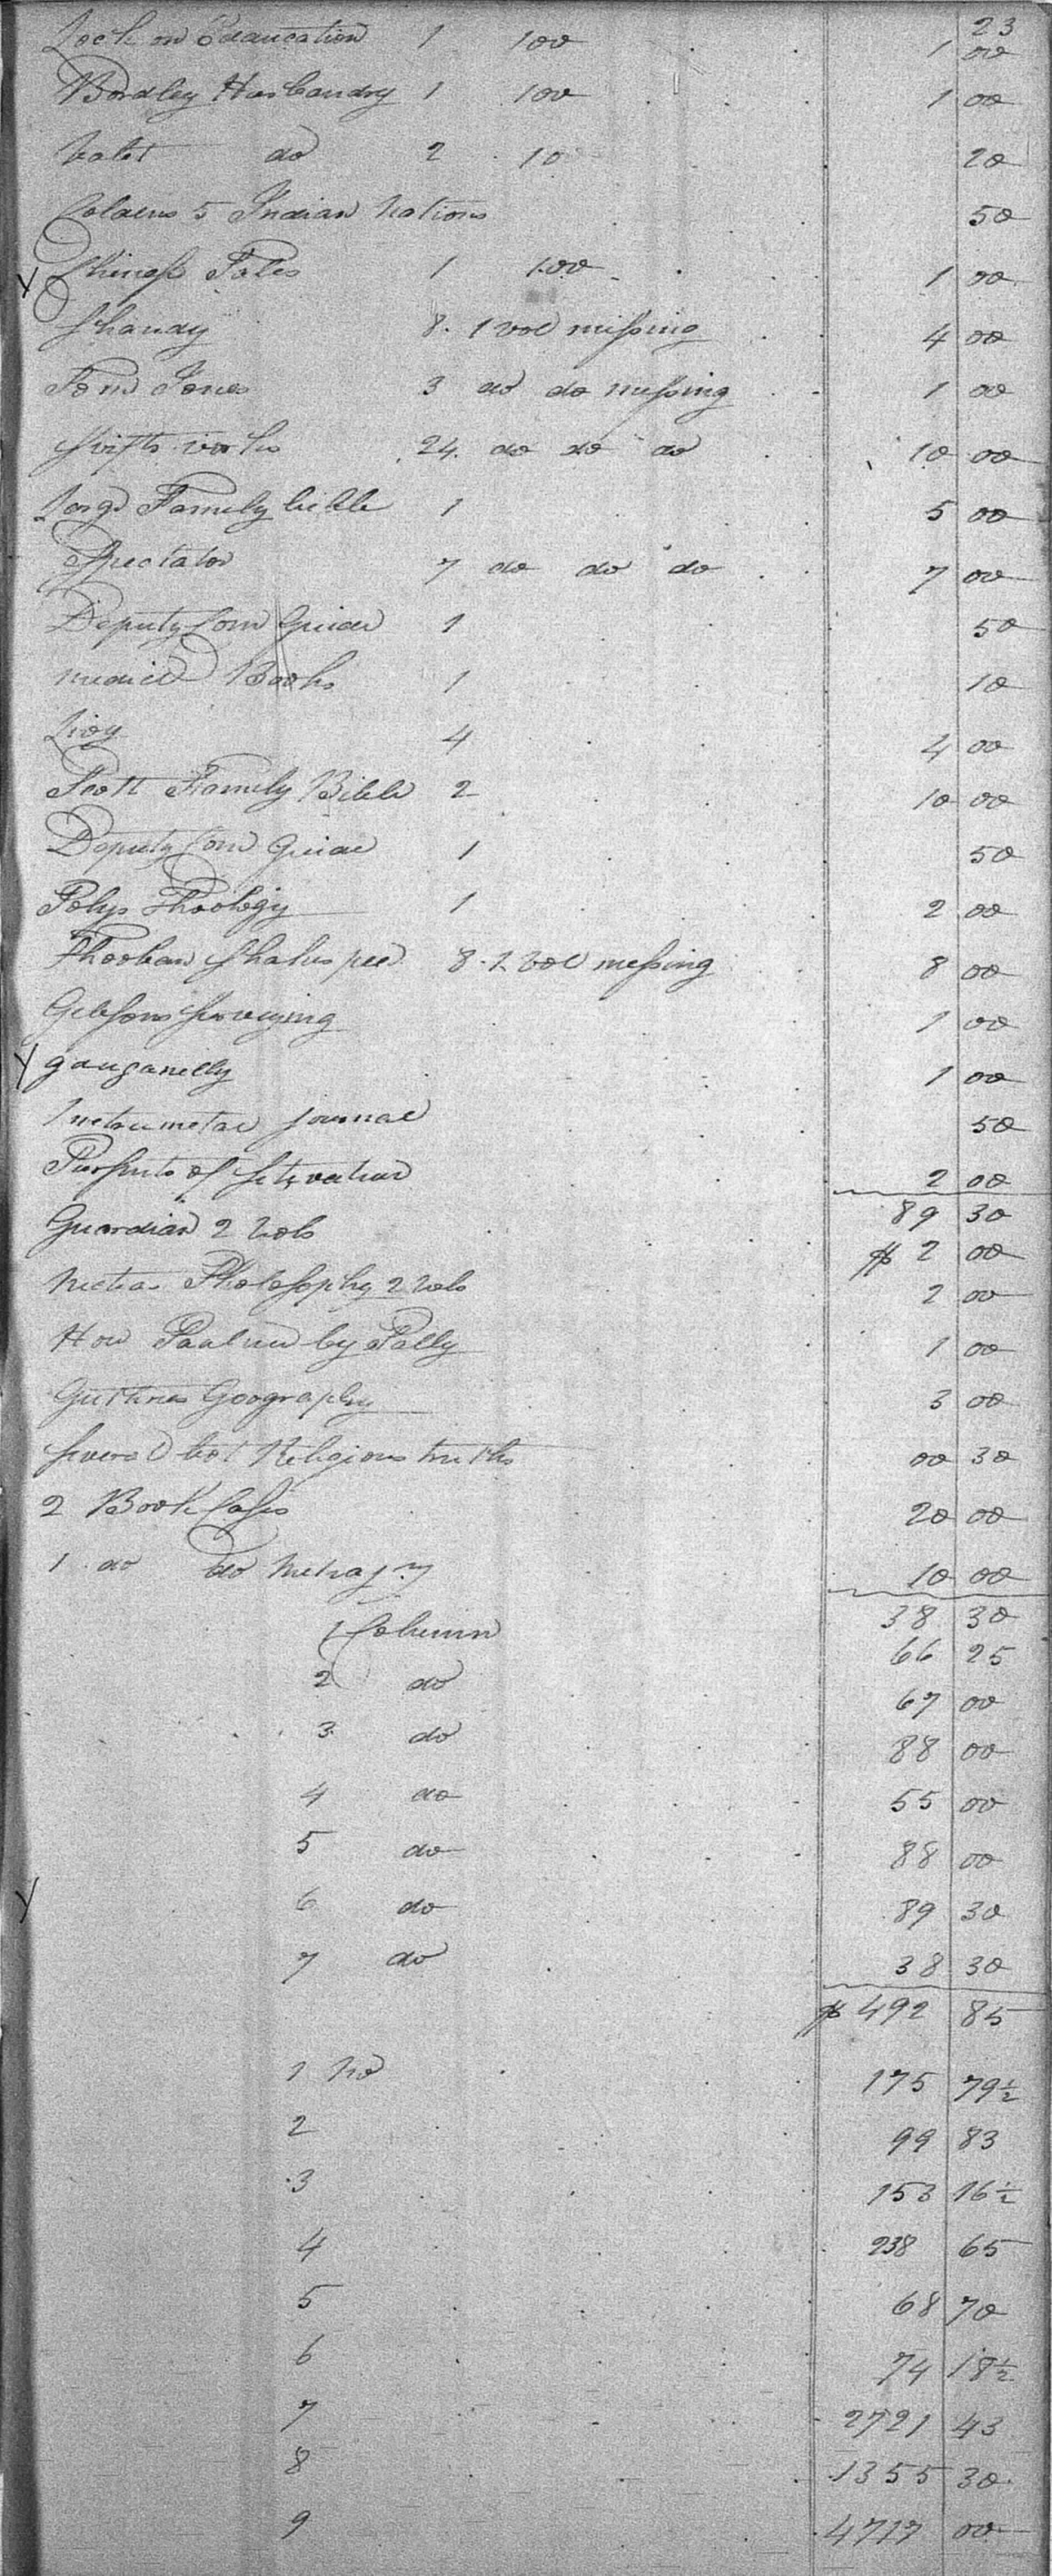 23
Lock on Edaucation 1 100 1 00
Bordley Husbandry 1 100 1 00
do 2 10 20
Coldens 5 Indian Nations 50
Y Chinese Tales 1 1.00 1 00
Shandy 8. 1 vol missing 4 00
Tom Jones 3 do do missing 1 00
Swifts works 24. do do do 10 00
Large Family bible 1 5 00
Spectator 7 do do do 7 00
Deputy Com Guide 1 50
Medicel Books 1 10
Livy 4 4 00
Scott Family Bible 2 10 00
Deputy Com Guide 1 50
Palys Theology 1 2 00
8. 2 vol messing 8 00
Gibsons Surveying 1 00
Y ganganelly 1 00
Journal 50
Pursuits of Literature 2 00
89 30
Guardian 2 Vols $ 2 00
Philosophy 2 Vols 2 00
How by Pally 1 00
Guthries Geography 3 00
Several Religious truths 00 30
2 Book Cases 20 00
1 do do 10 00
38 30
1 Column 66 25
2 do 67 00
3 do 88 00
4 do 55 00
5 do 88 00
Y 6 do 89 30
7 do 38 30
$ 492 85
1 No 175 79½
2 99 83
3 153 16½
4 238 65
5 68 70
6 74 18½
7 2721 43
8 1355 30
9 4717 00